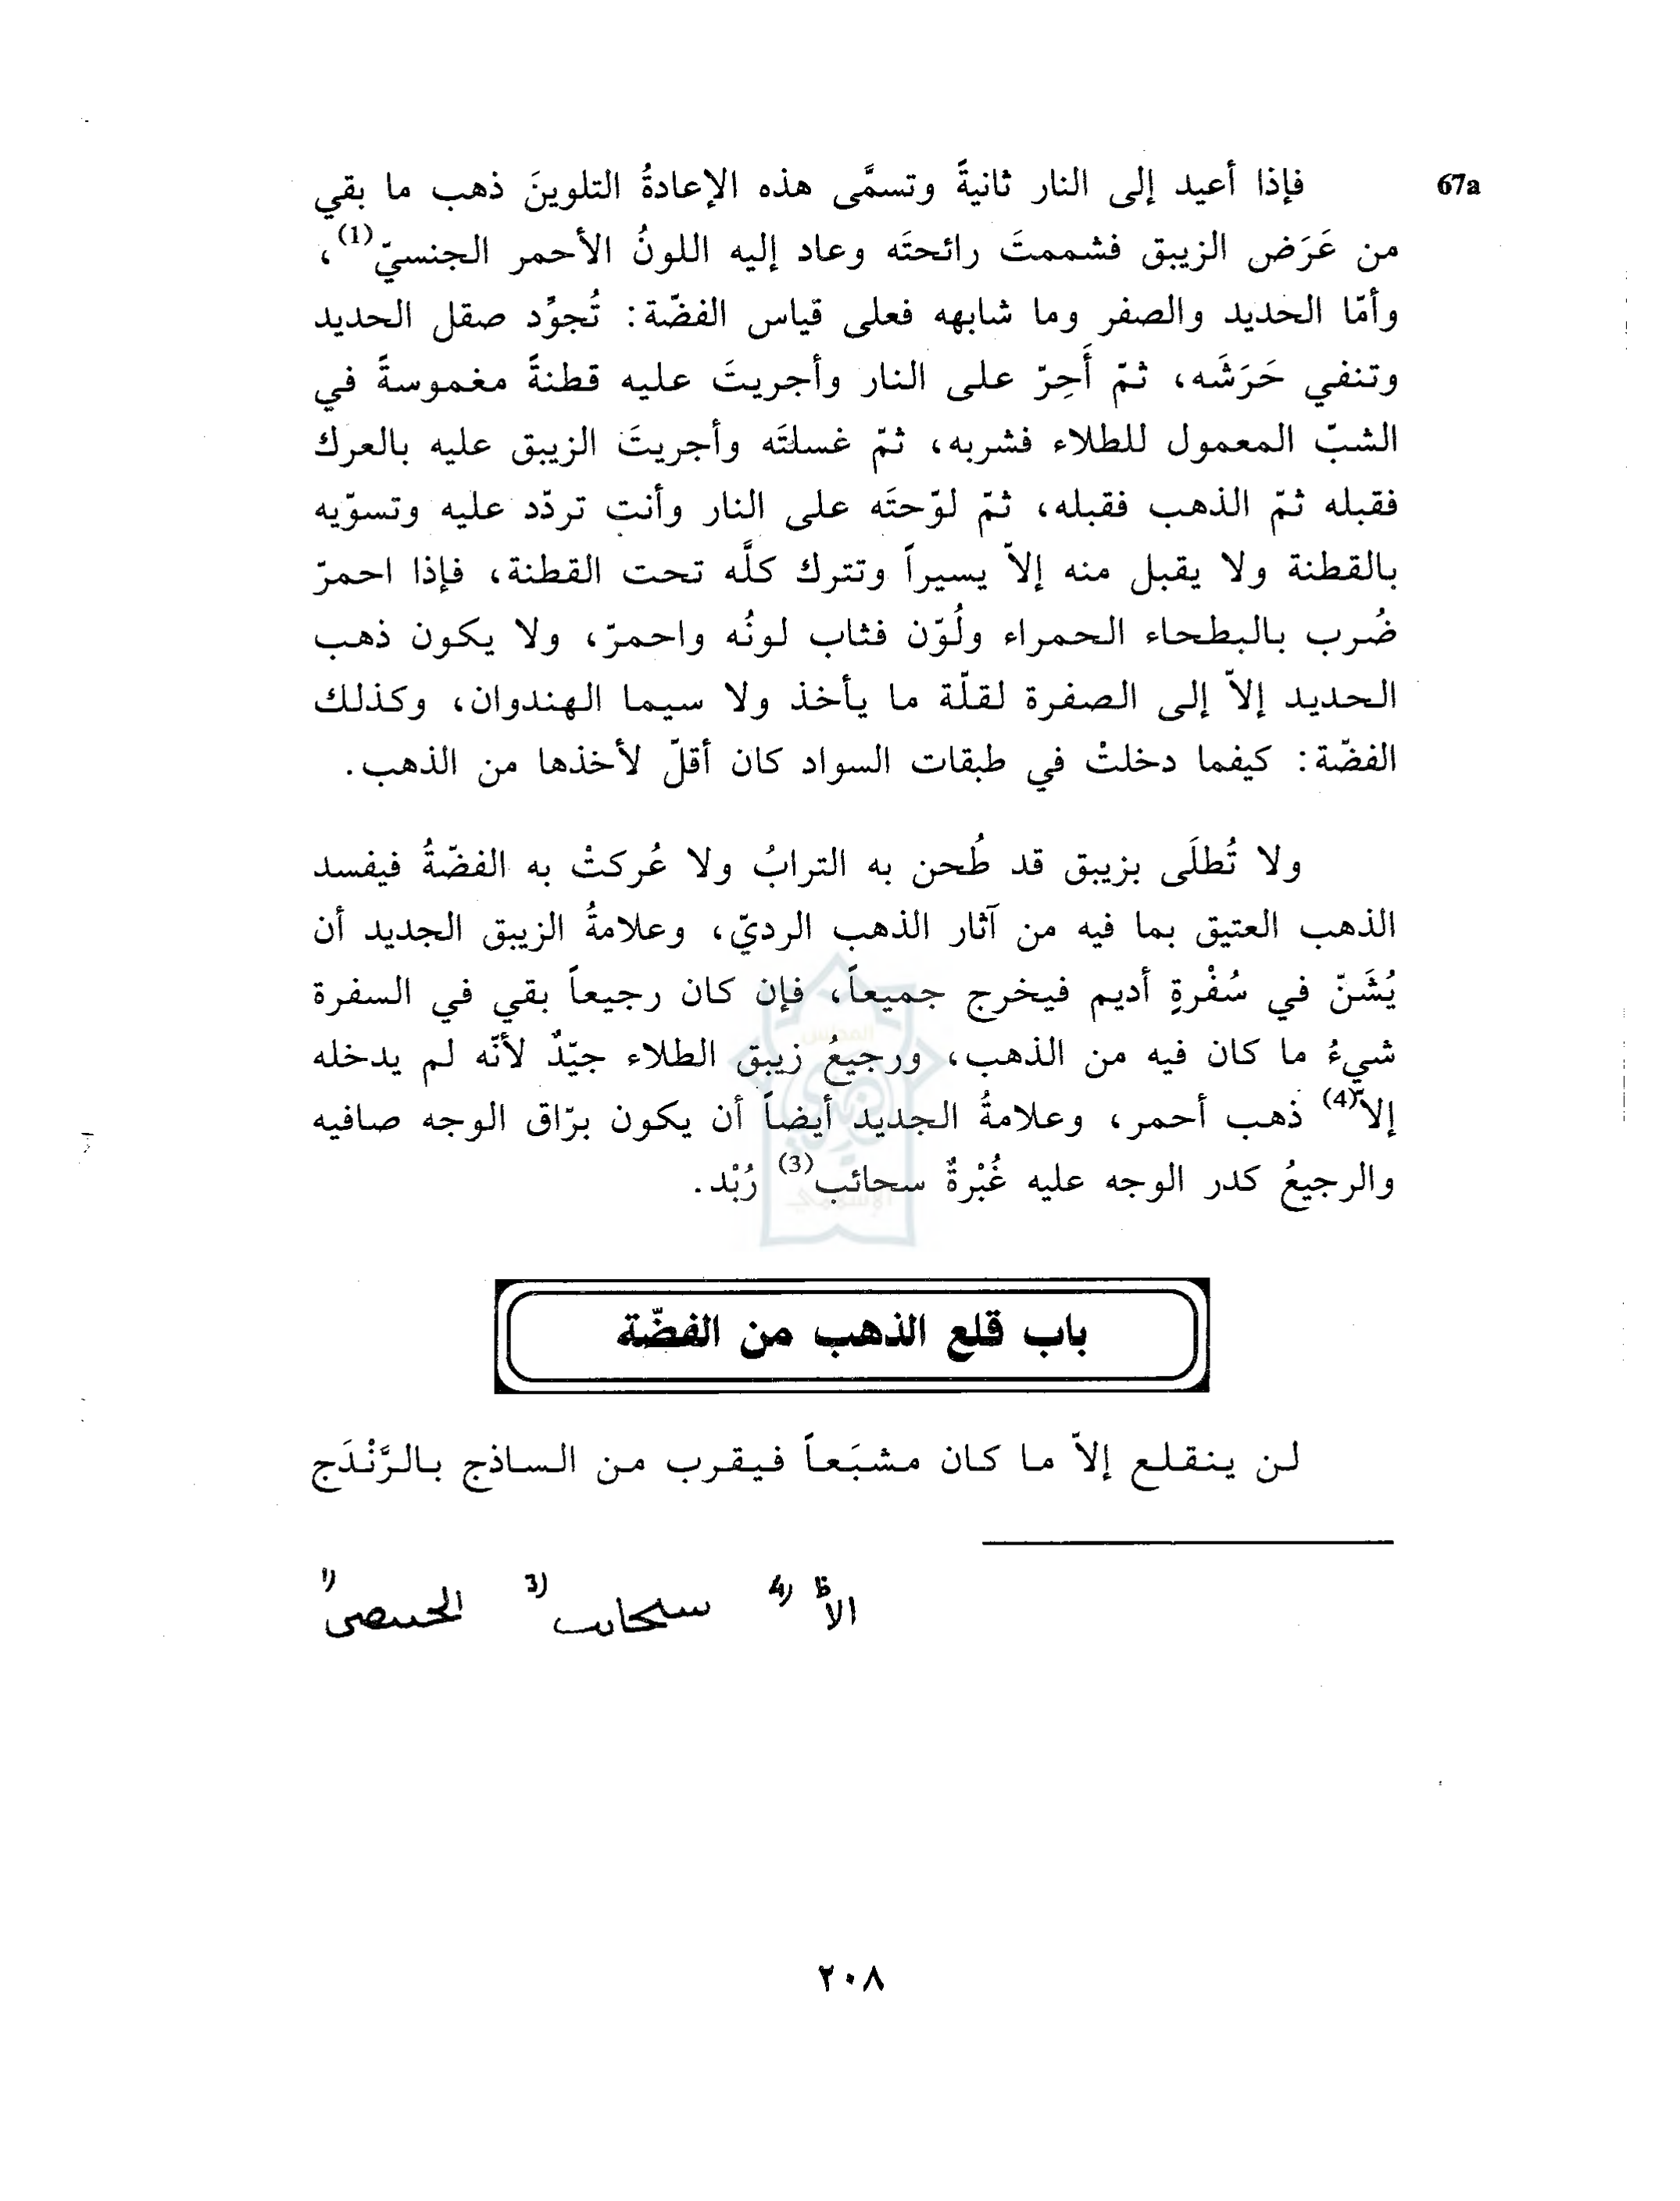 67a
فإذا أعيد إلى النار ثانيةً وتسمَّى هذه الإعادةُ التلوينَ ذهب ما بقي
من عَرَض الزيبق فشممتَ رائحتَه وعاد إليه اللونُ الأحمر الجنسيّ(1)،
وأمّا الحديد والصفر وما شابهه فعلى قياس الفضّة: تُجوِّد صقل الحديد
وتنفي حَرَشَه، ثمّ أَحِرّ على النار وأجريتَ عليه قطنةً مغموسةً في
الشبّ المعمول للطلاء فشربه، ثمّ غسلتَه وأجريتَ الزيبق عليه بالعرك
فقبله ثمّ الذهب فقبله، ثمّ لوّحتَه على النار وأنت تردّد عليه وتسوّيه
بالقطنة ولا يقبل منه إلاّ يسيراً وتترك كلَّه تحت القطنة، فإذا احمرّ
ضُرب بالبطحاء الحمراء ولُوّن فثاب لونُه واحمرّ، ولا يكون ذهب
الحديد إلاّ إلى الصفرة لقلّة ما يأخذ ولا سيما الهندوان، وكذلك
الفضّة: كيفما دخلتْ في طبقات السواد كان أقلّ لأخذها من الذهب.
ولا تُطلَى بزيبق قد طُحن به الترابُ ولا عُركتْ به الفضّةُ فيفسد
الذهب العتيق بما فيه من آثار الذهب الرديّ، وعلامةُ الزيبق الجديد أن
يُشَنّ في سُفْرةٍ أديم فيخرج جميعاً، فإن كان رجيعاً بقي في السفرة
شيءُ ما كان فيه من الذهب، ورجيعُ زيبق الطلاء جيّدٌ لأنّه لم يدخله
إلاّ(4) ذهب أحمر، وعلامةُ الجديد أيضاً أن يكون برّاق الوجه صافيه
والرجيعُ كدر الوجه عليه غُبْرةٌ سحائب(3) رُبْد.
باب قلع الذهب من الفضّة
لن ينقلع إلاّ ما كان مشبَعاً فيقرب من الساذج بالرَّنْدَج
1) 3) سحاىب 4) الا
٢٠٨